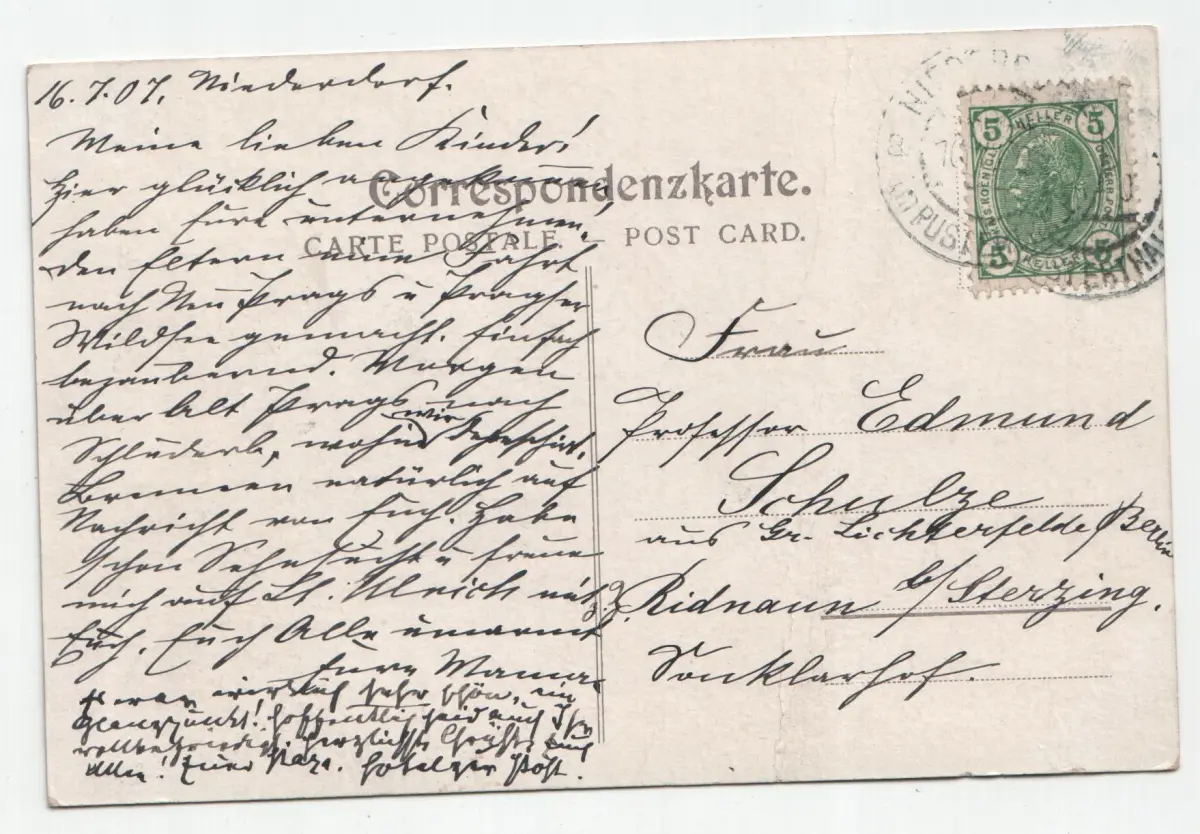 16.7.07. Niederdorf.
Meine lieben Kinder!
Hier glücklich angekommen
haben Eure unternehmen-
den Eltern eine Fahrt
nach Neu Prags u Pragser
Wildsee gemacht. Einfach
bezaubernd. Morgen
über Alt Prags nach
Schluderb, wohin wir depeschirt.
Brennen natürlich auf
Nachricht von Euch. Habe
schon Sehnsucht u freue
mich auf St. Ulrich mit
Euch. Euch Alle umarmt
Eure Mama.
Es war wirklich sehr schön, ein
Glanzpunkt! Hoffentlich seid auch Ihr
vollbefriedigt. Herzlichste Grüße Euch
Allen! Euer Papa. Hotel zur Post.
Correspondenzkarte.
CARTE POSTALE. — POST CARD.
NIEDERD
PUSTERTHAL
5 HELLER 5
5 HELLER 5
Frau
Professor Edmund
Schulze
aus Gr. Lichterfelde/Berlin
Ridnaun b/Sterzing.
Sonklarhof.